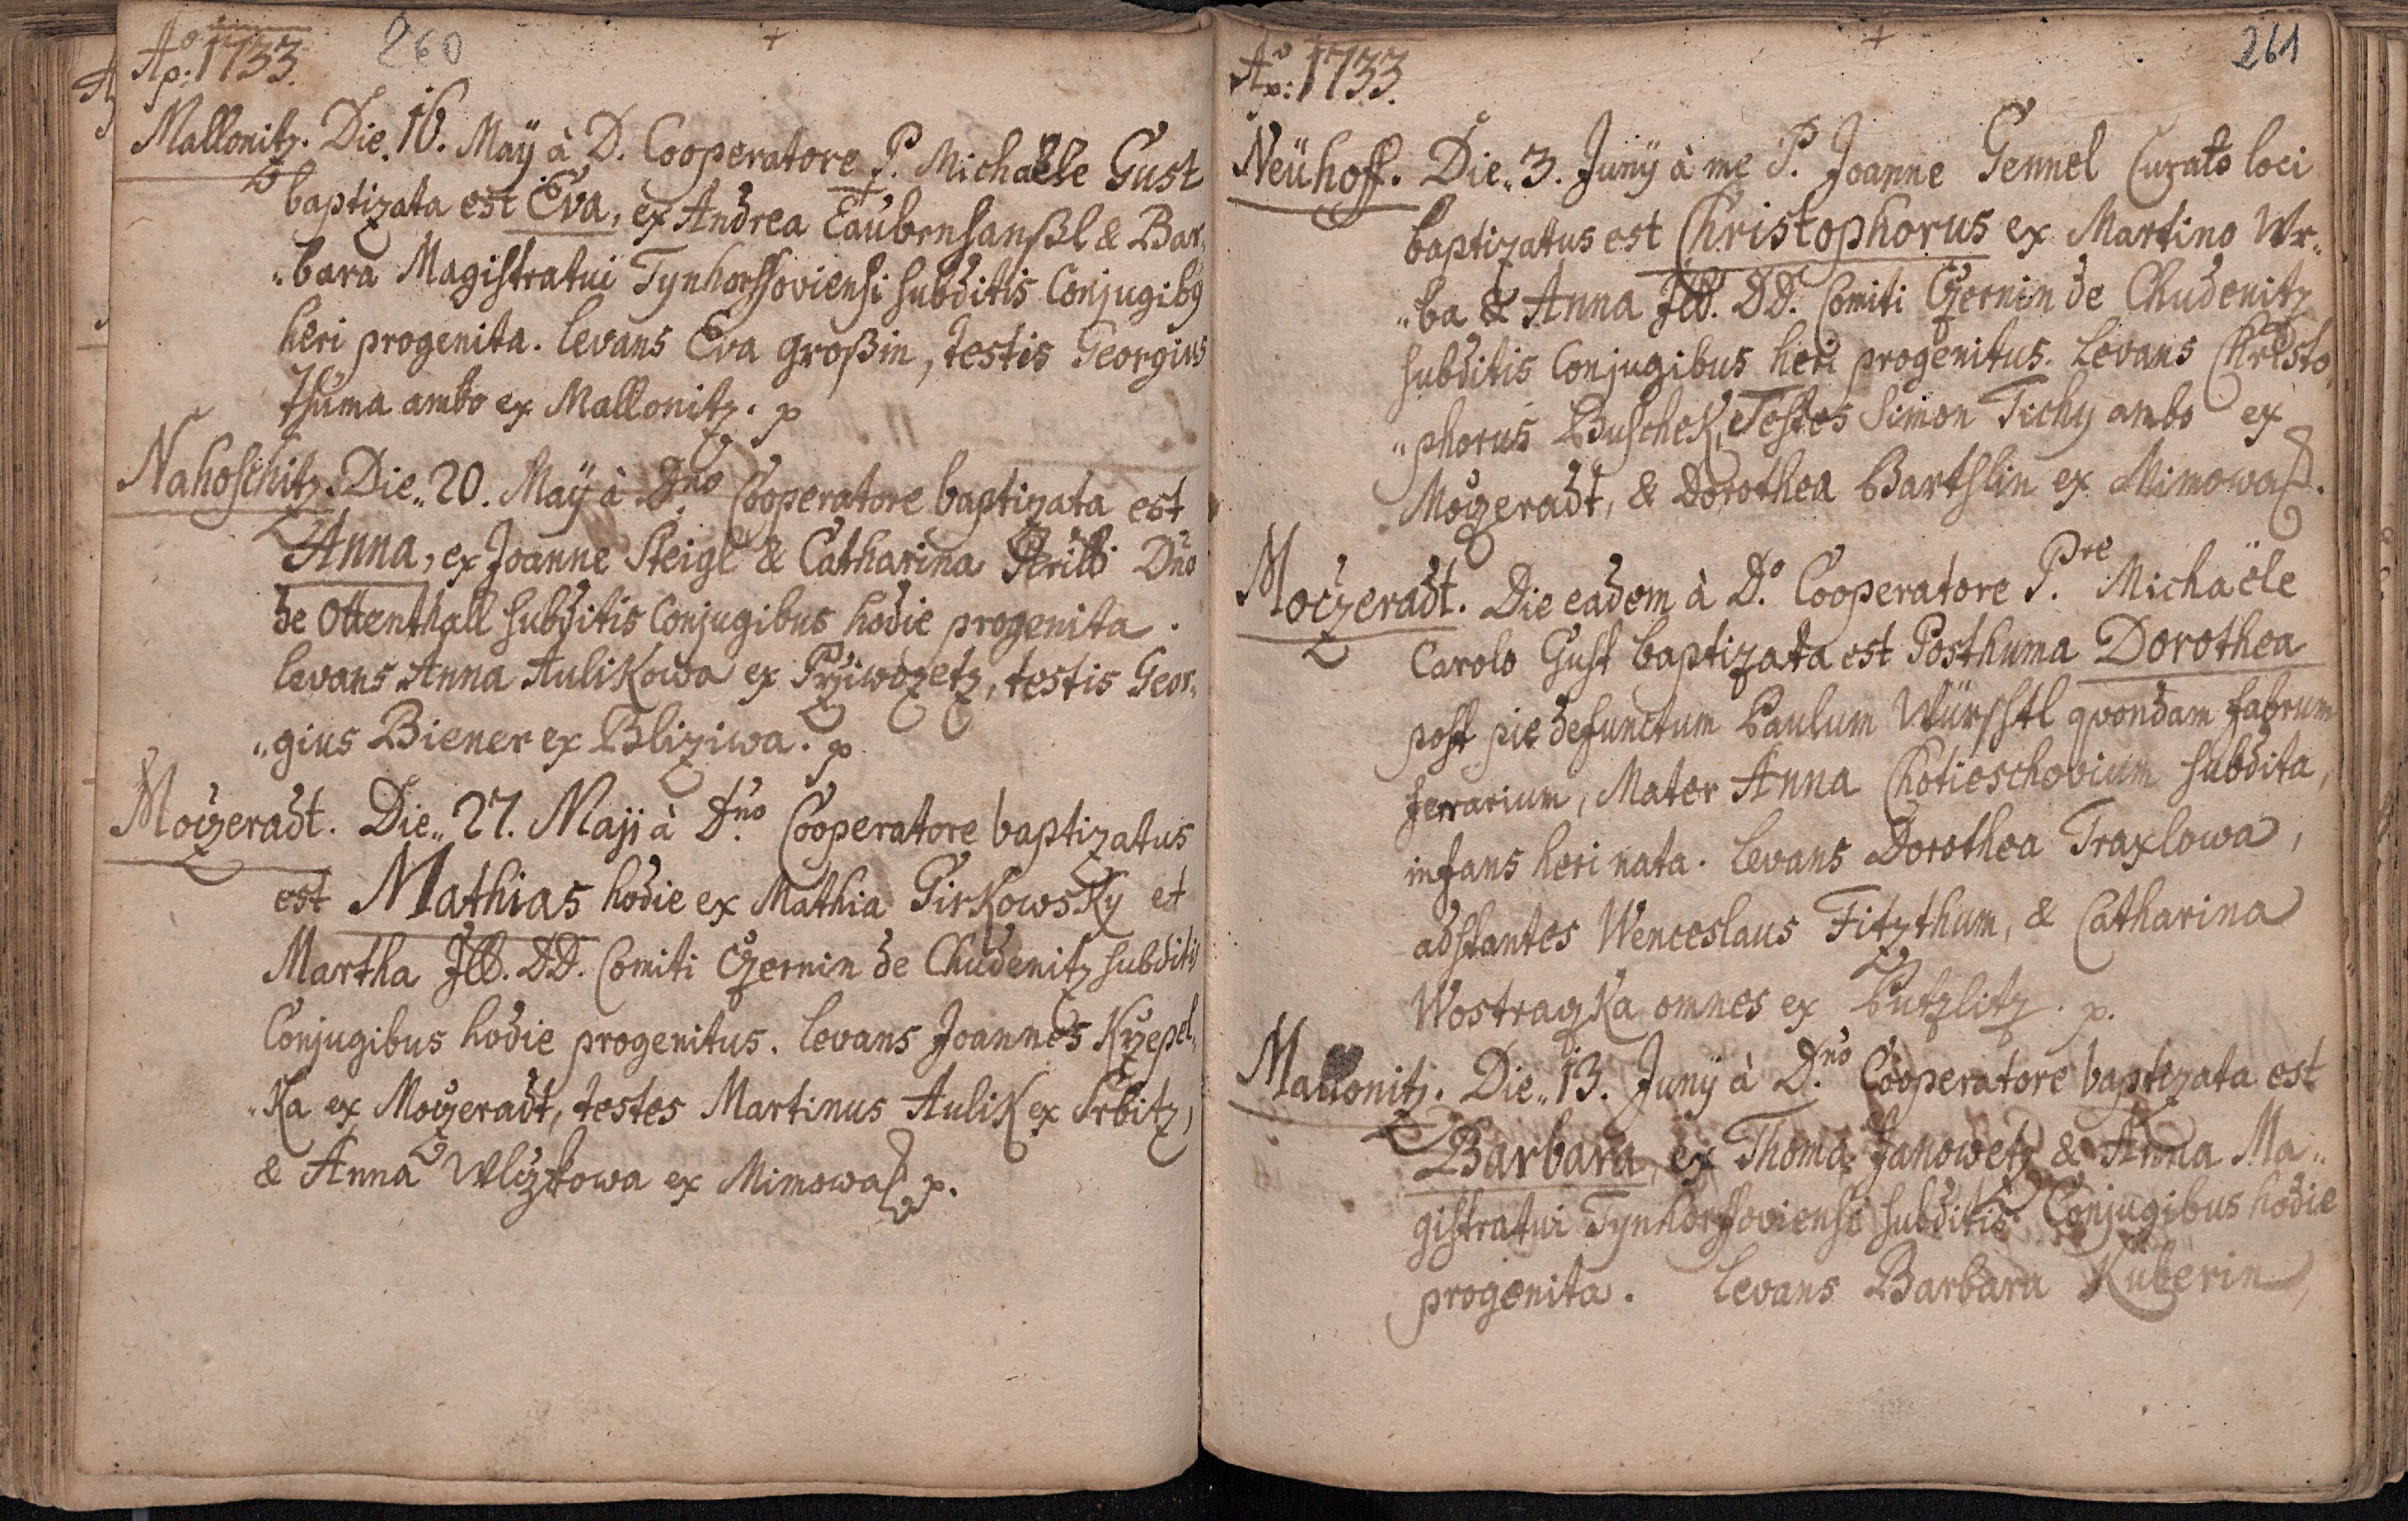 Aº p: 1733.
260
Mallonitz. Die. 16. Maÿ à D. Cooperatore P. Michaële Gust
baptizata est Eva, ex Andrea Taubenhanßl & Bar„
„bara Magistratui Tynhorssoviensi subditis Conjugibꝰ
heri progenita. levans Eva großin, testis Georgius
Thuma ambo ex Mallonitz. p
Nahoschitz. Die„ 20. Maÿ à Dno Cooperatore baptizata est
Anna, ex Joanne Steigl & Catharina Dno
de Ottenthall subditis Conjugibus hodie progenita.
levans Anna Aulikowa ex Przivozetz, testis Geor„
„gius Biener ex Bliziwa. p
Moczeradt. Die„ 27. Maji à Dno Cooperatore baptizatus
est Mathias hodie ex Mathia Girkowsky et
Martha Ill. DD. Comiti Czernin de Chudenitz subditis
Conjugibus hodie progenitus. levans Joannes Krzepel„
„ka ex Moczeradt, testes Martinus Aulik ex Srbitz,
& Anna Wlczkowa ex Mimowa p.
Aº p: 1733.
261
Neühoff. Die„ 3. Junÿ à me P. Joanne Gennel Curato loci
baptizatus est Christophorus ex Martino Wr„
„ba & Anna Ill. DD. Comiti Czernin de Chudenitz
subditis Conjugibus heri progenitus. Levans Christo„
„phorus Buschek, Testes Simon Tichy ambo ex
Moczeradt, & Dorothea Bartslin ex Mimowa.
Moczeradt. Die eadem à Dº Cooperatore P.re Michaële
Carolo Gust baptizata est Posthuma Dorothea
post pie defunctum Paulum Würschtl quondam fabrum
ferrarium, Mater Anna Chotieschovium subdita,
infans heri nata. levans Dorothea Traxlowa,
adstantes Wenceslaus Fitzthum, & Catharina
Wostraczka omnes ex Putzlitz. p.
Mallonitz. Die„ 13. Junÿ à D.no Cooperatore baptizata est
Barbara, ex Thoma Janowetz & Anna Ma„
gistratui Tynhorssoviensi subditis Conjugibus hodie
progenita. levans Barbara Kuberin,